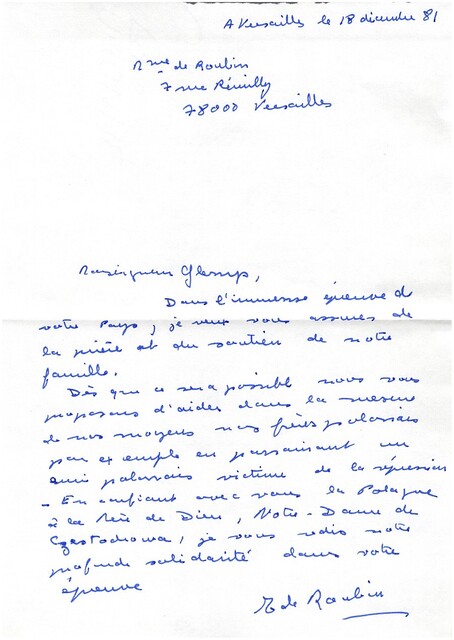 A Versailles le 18 décembre 81
Mme de Roubin
7 rue Réuilly
78000 Versailles
Monseigneur Glemp,
Dans l'immense épreuve de
votre Pays, je veux vous assurer de
la prière et du soutien de notre
famille.
Dès que ce sera possible nous vous
proposons d'aider dans la mesure
de nos moyens nos frères polonais
par exemple en parrainant un
ami polonais victime de la répression
- En confiant avec vous la Pologne
à la Mère de Dieu, Notre-Dame de
Częstochowa, je vous redis notre
profonde solidarité dans votre
épreuve
de Roubin